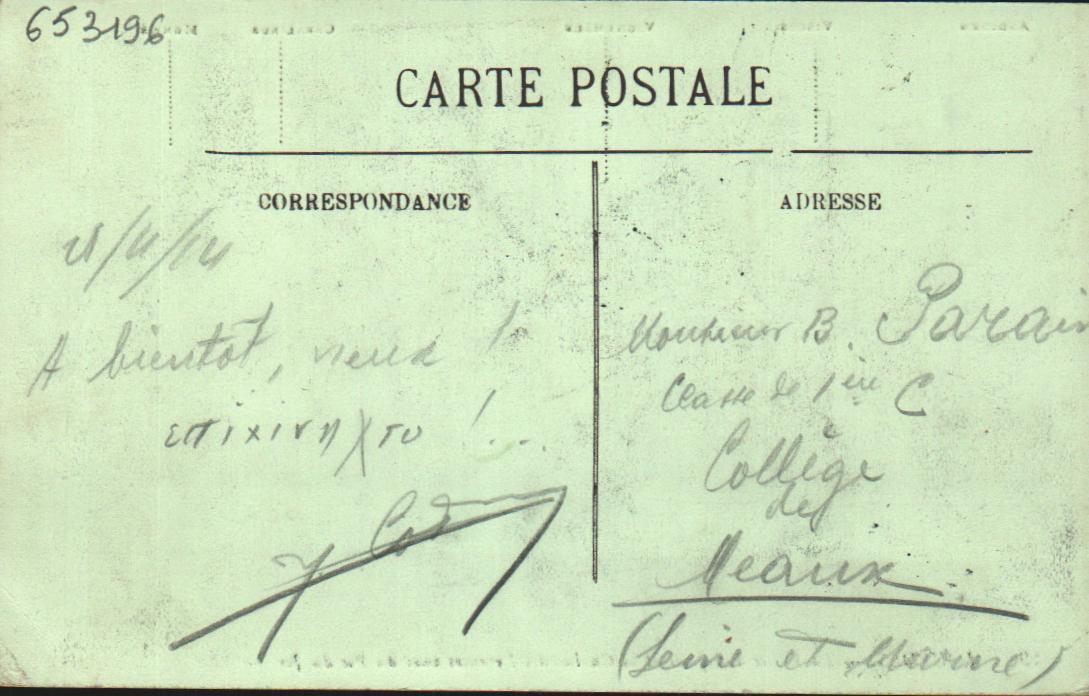 653196
CARTE POSTALE
CORRESPONDANCE
ADRESSE
A bientôt, vieux !
!...
Monsieur B. Parain
Classe de 1ère C
Collège
de
Meaux
(Seine et Marne)